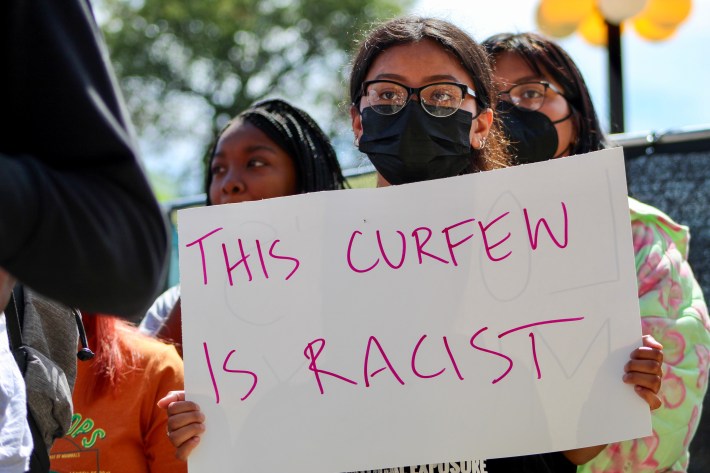 THIS CURFEW
IS RACIST
EXPOSURE